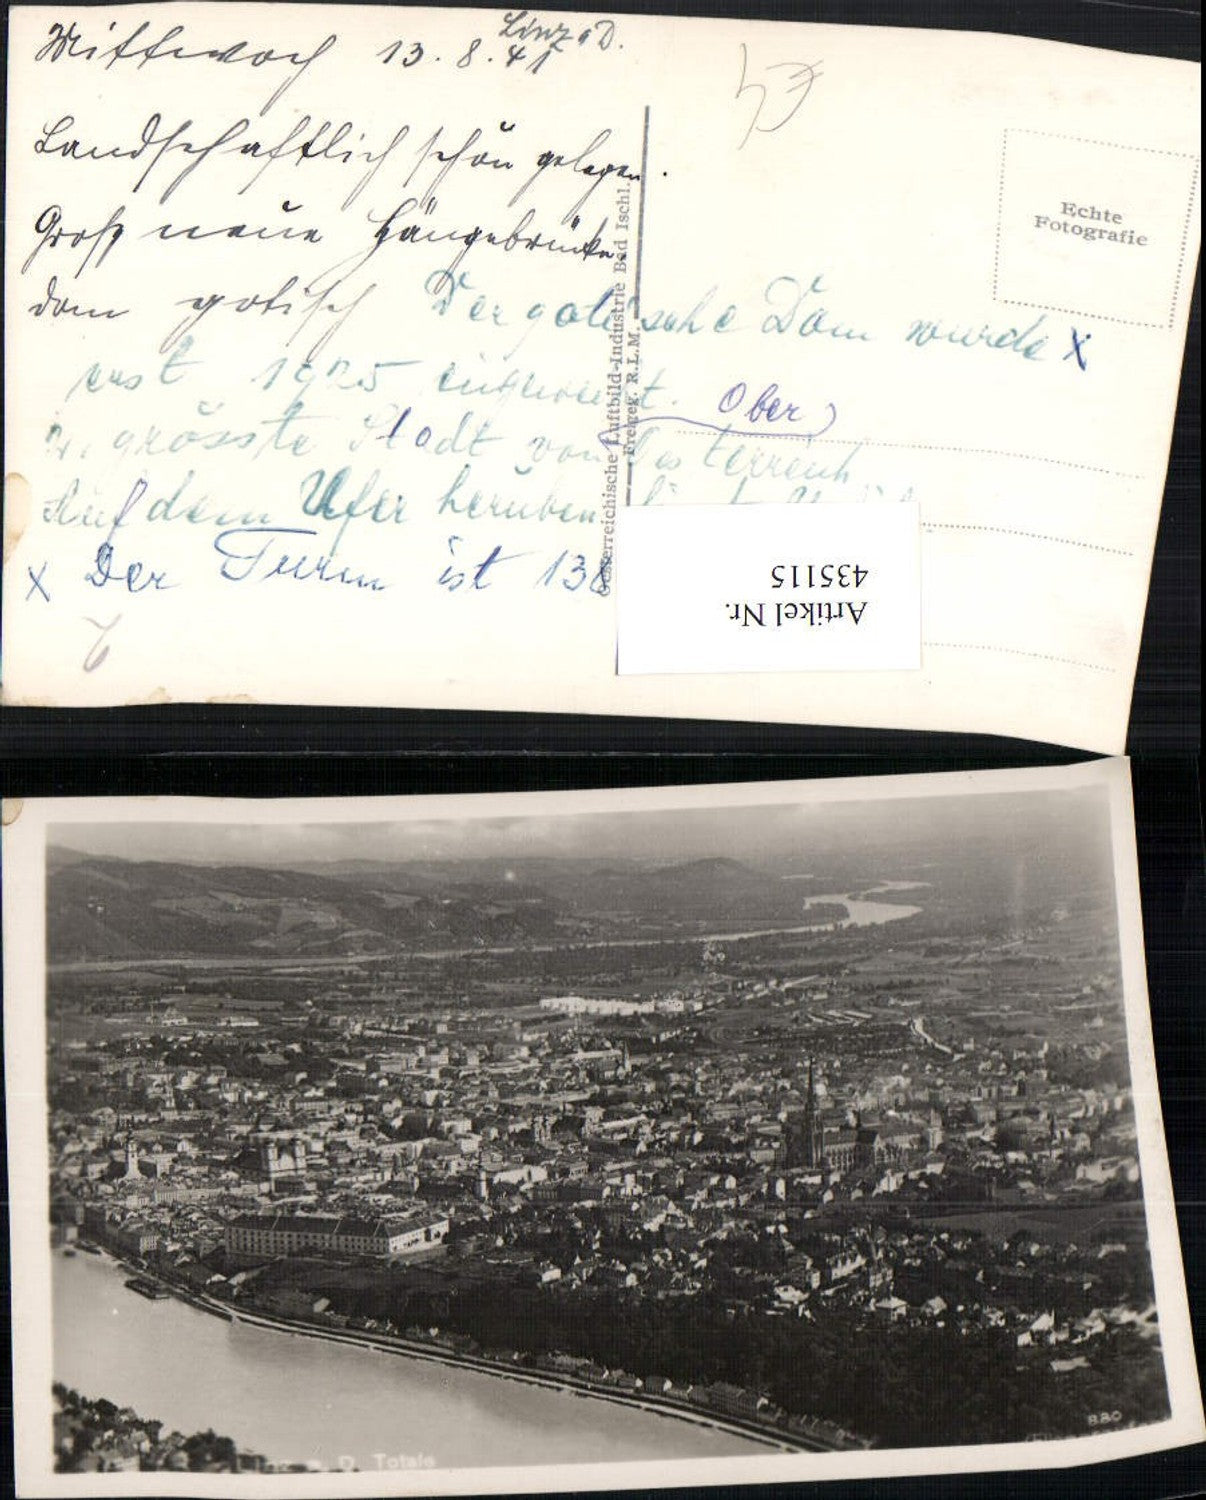 Linz a D.
Mittwoch 13.8.41
Landschaftlich schön gelegen.
Große neue Hängebrücke
dom gotisch Der gotische Dom wurde x
erst 1925 eingeweiht.
Ober
grösste Stadt von Österreich
Auf dem Ufer herüben
x Der Turm ist 13
Echte
Fotografie
Österreichische Luftbild-Industrie Bad Ischl.
Freigeg. R.L.M.
Artikel Nr.
435115
a. D. Totale